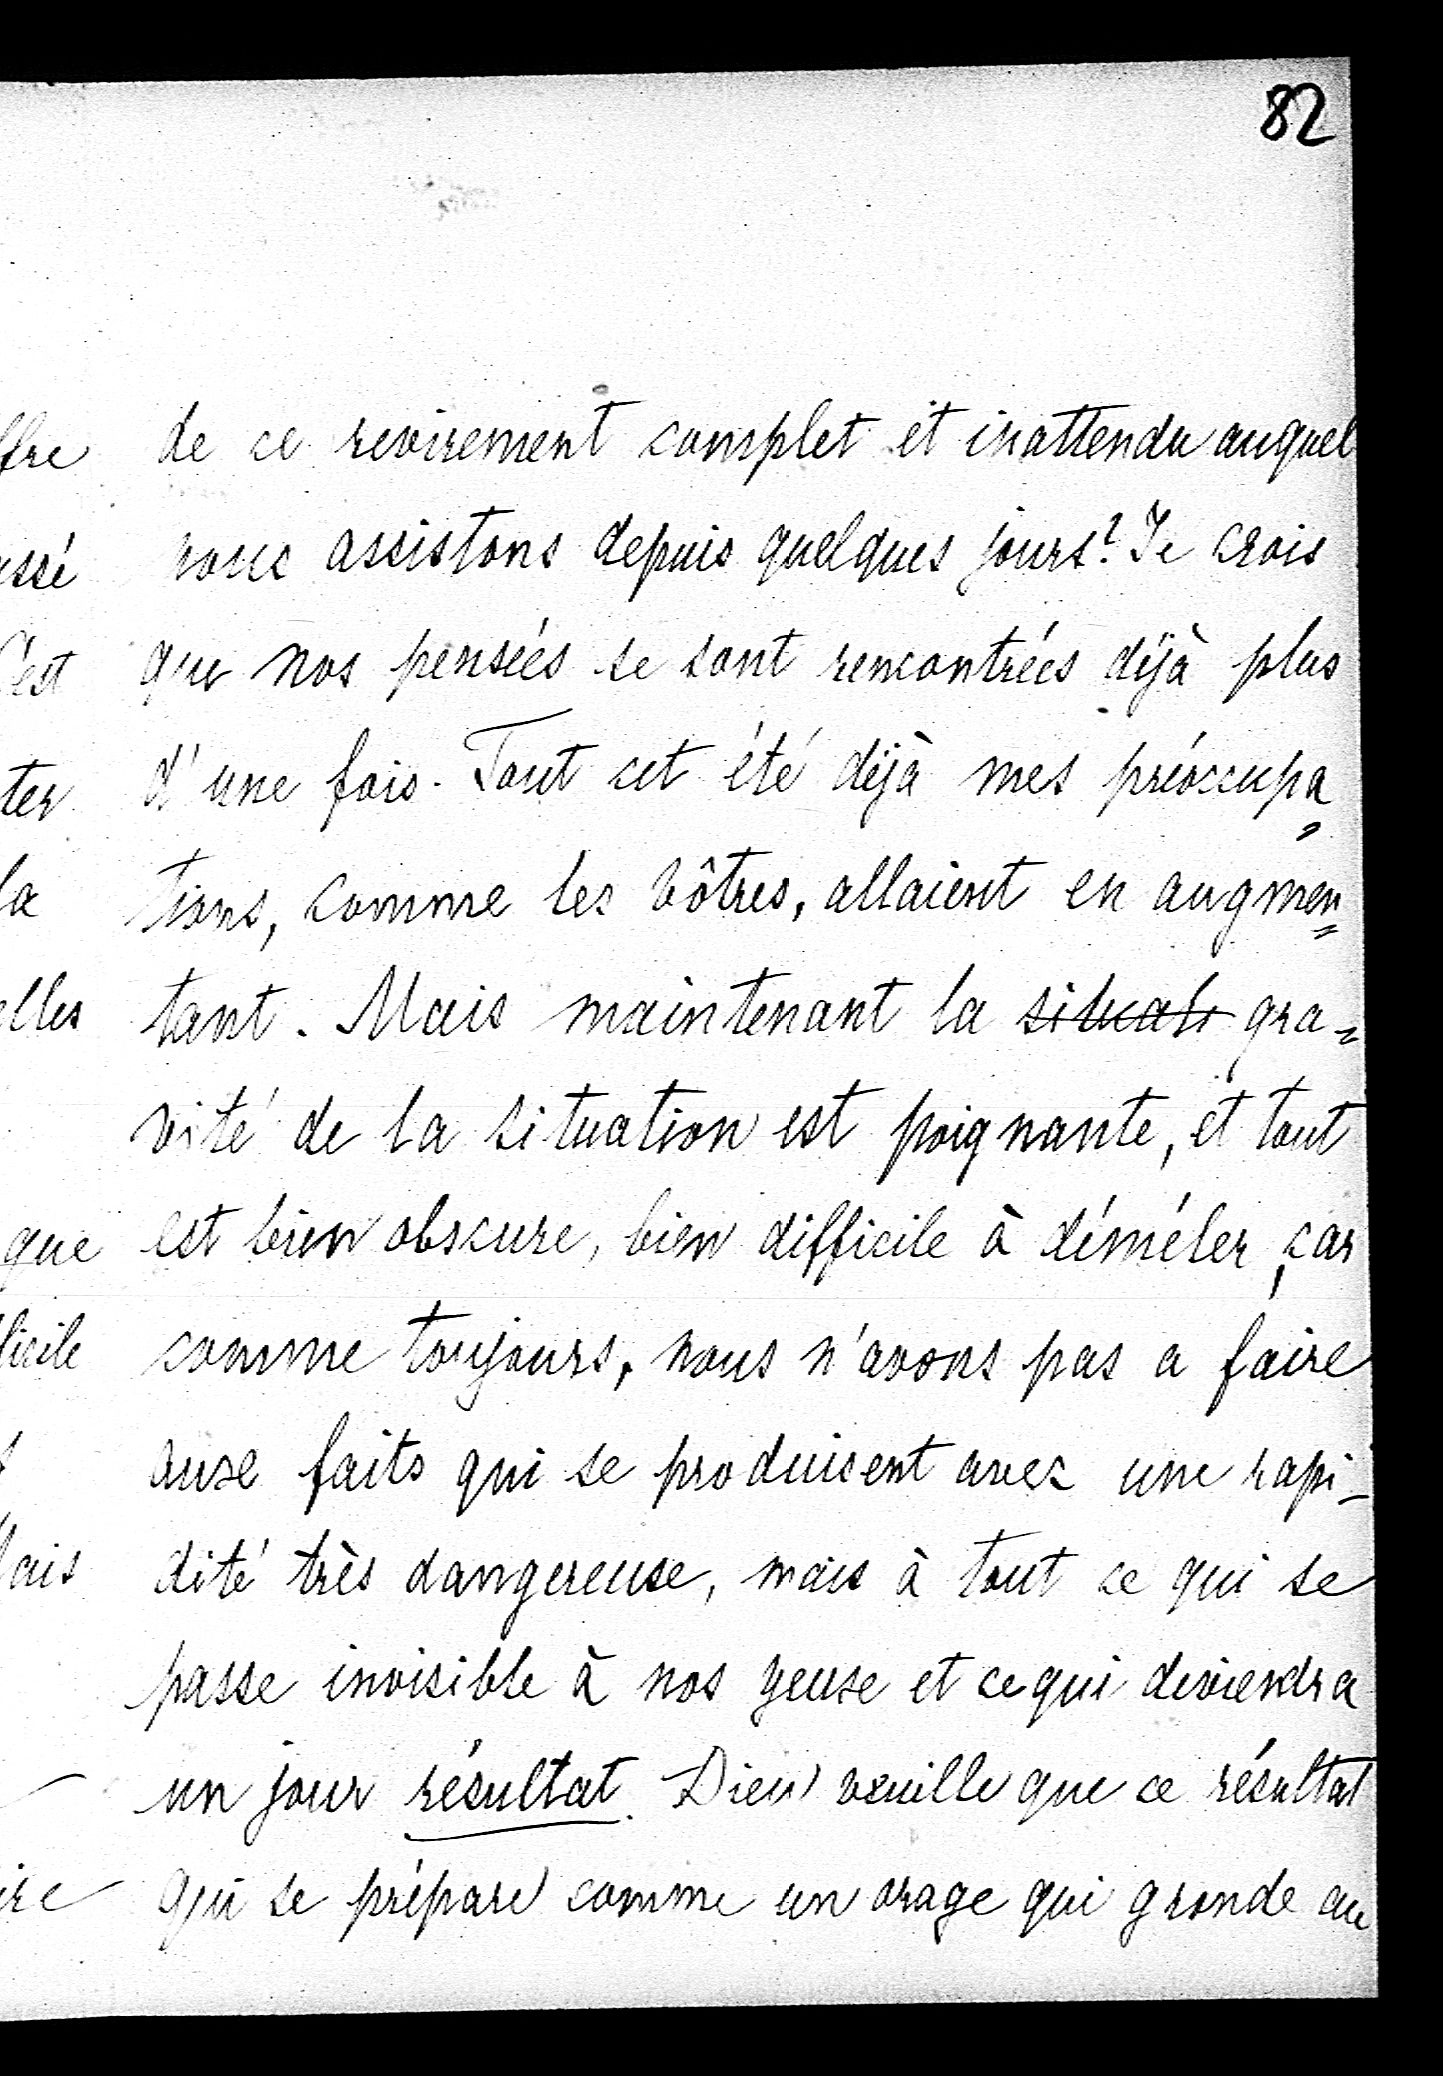 82
de ce revirement complet et inattendu auquel
nous assistons depuis quelques jours? Je crois
que nos pensées se sont rencontrées déjà plus
d'une fois. Tout cet été déjà mes préoccupa
tions, comme les vôtres, allaient en augmen=
tant. Mais maintenant la situati gra=
vité de la situation est poignante, et tout
est bien obscure, bien difficile à déméler, car
comme toujours, nous n'avons pas a faire
aux faits qui se produisent avec une rapi-
dité très dangereuse, mais à tout ce qui se
passe invisible à nos yeux et ce qui deviendra
un jour résultat. Dieu veuille que ce résultat
qui se prépare comme un orage qui gronde au
ffre
ussé
C'est
ter
la
elles
que
ficile
ais
ire